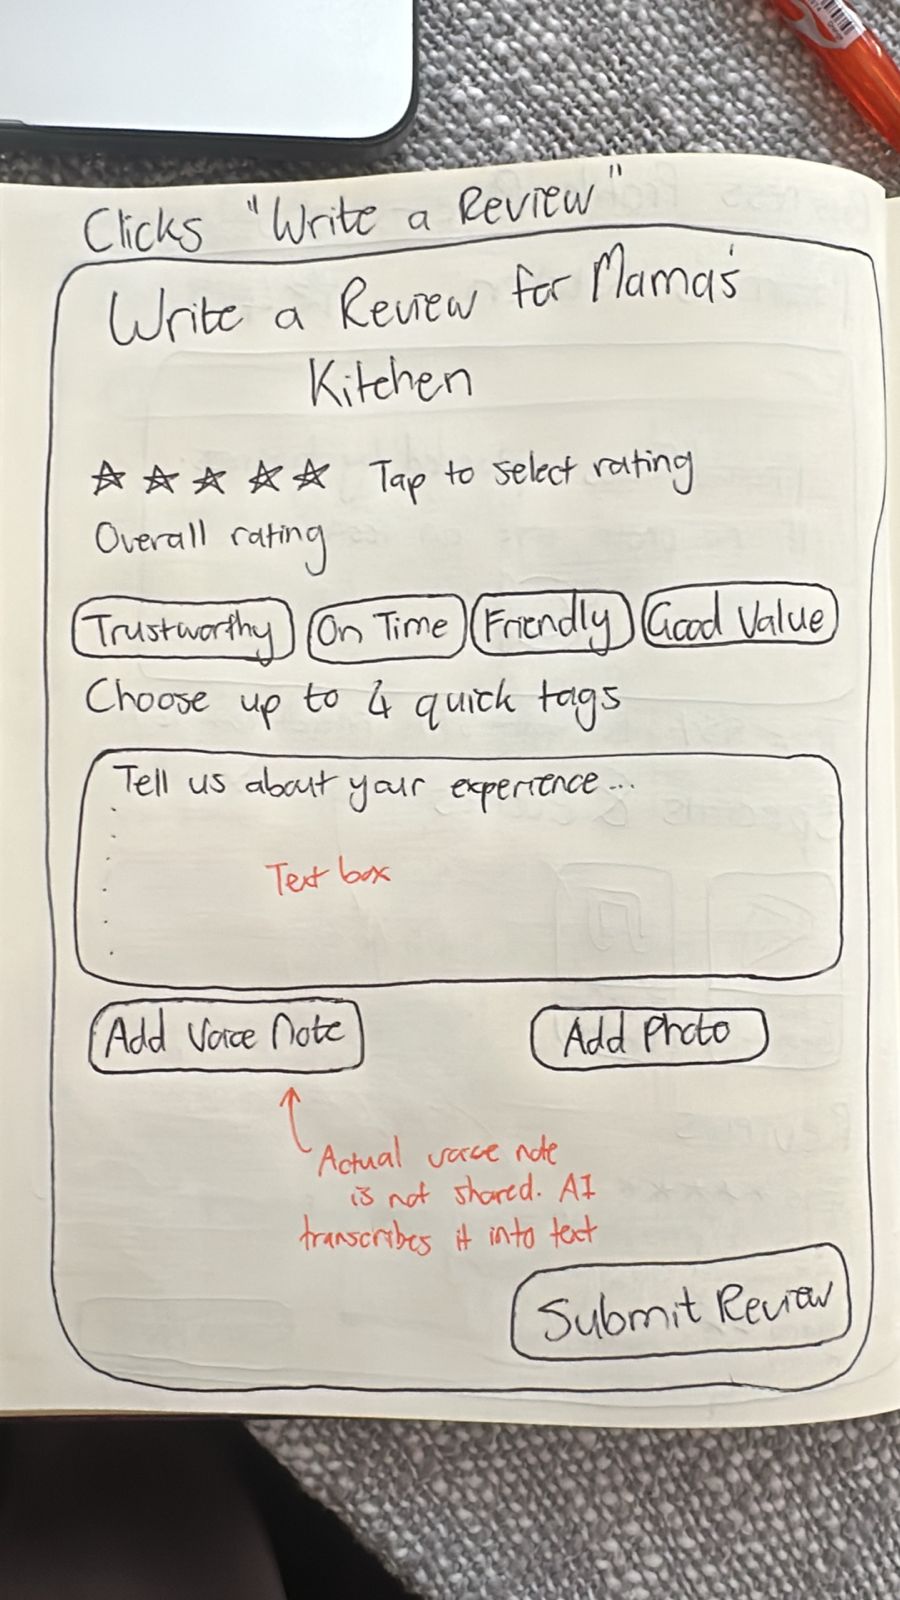 Clicks "Write a Review"
Write a Review for Mama's
Kitchen
Tap to select rating
Overall rating
Trustworthy On Time Friendly Good Value
Choose up to 4 quick tags
Tell us about your experience...
Text box
Add Voice Note Add Photo
Actual voice note
is not shared. AI
transcribes it into text
Submit Review